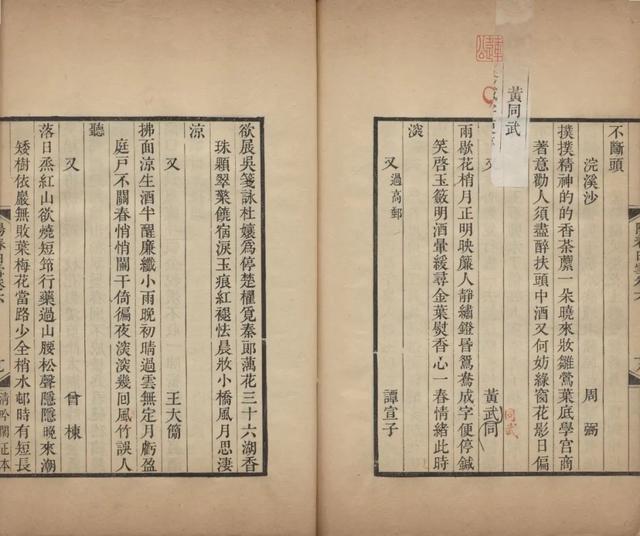 不斷頭
浣溪沙 周弼
撲撲精神的的香荼䕷一朵曉來妝雛鶯葉底學宮商
著意勸人須盡醉扶頭中酒又何妨緣窗花影日偏
黃同武
又 黃武同
同武
雨歇花梢月正明映簾人靜繡鐙昏鴛鴦成字便停鍼
笑啓玉籢明酒暈緩尋金葉熨香心一春情緒此時
深
又 過高郵 譚宣子
欲展吳箋詠杜孃爲停楚櫂覓秦郎藕花三十六湖香
珠顆翠檠饒宿淚玉痕紅褪怯晨妝小橋風月思淒
涼
又 王大簡
拂面涼生酒半醒廉纖小雨晚初晴過雲無定月虧盈
庭戸不關春悄悄闌干倚徧夜深深幾回風竹誤人
聽
又 曾棟
落日烝紅山欲燒短筇行藥過山腰松聲隱隱晚來潮
矮樹依巖無敗葉梅花當路少全梢水邨時有短長
陽春白雪卷六
清吟閣正本